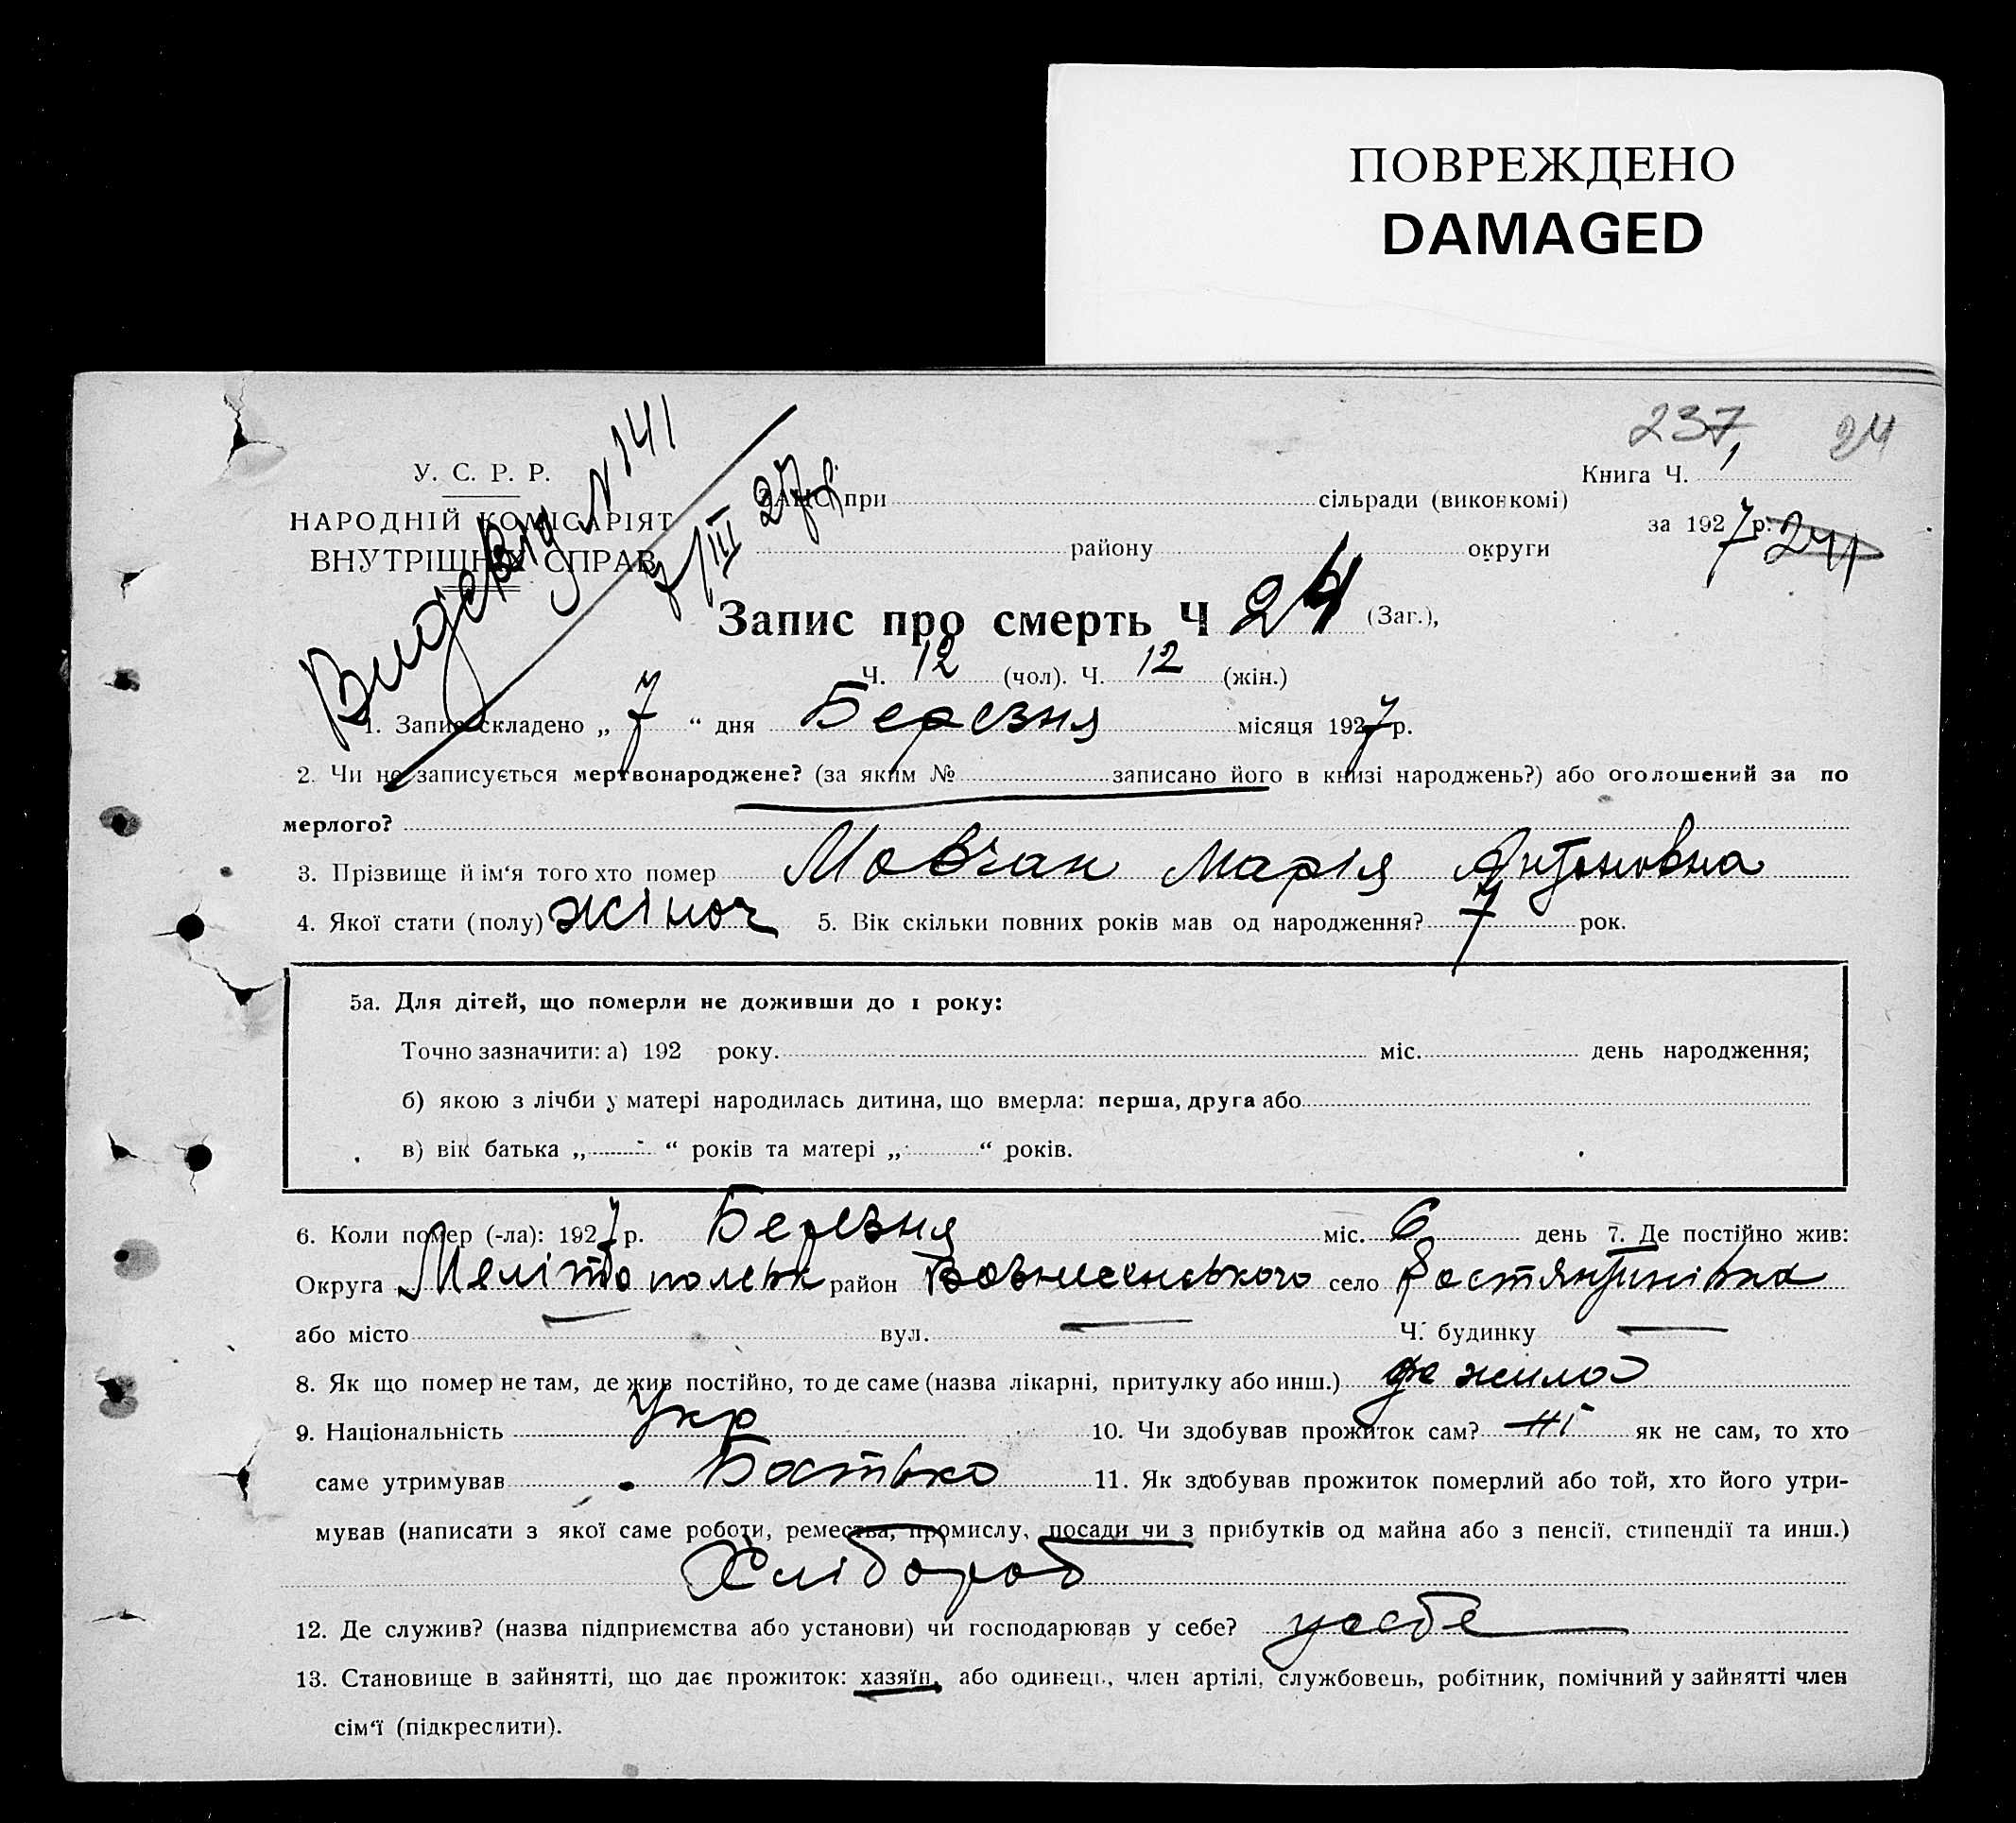 ПОВРЕЖДЕНО
DAMAGED
237, 24
У. С. Р. Р.
НАРОДНІЙ КОМІСАРІЯТ
ВНУТРІШНІХ СПРАВ
N 141
7/III 27
Книга Ч.
ЗАПС при сільради (виконкомі)
за 1927 р. 24
району округи
Запис про смерть Ч 24 (Заг.),
Ч. 12 (чол). Ч. 12 (жін.)
1. Запис складено „ 7 “ дня Березня місяця 1927 р.
2. Чи не записується мертвонароджене? (за яким № записано його в книзі народжень?) або оголошений за по
мерлого?
3. Прізвище й ім‘я того хто помер Мовчан Марія Антоновна
4. Якої стати (полу) жіноч 5. Вік скільки повних років мав од народження? 7 рок.
5а. Для дітей, що померли не доживши до 1 року:
Точно зазначити: а) 192 року. міс. день народження;
б) якою з лічби у матері народилась дитина, що вмерла: перша, друга або
в) вік батька „ “ років та матері „ “ років.
6. Коли помер (-ла): 1927 р. Березня міс. 6 день 7. Де постійно жив:
Округа Мелітопольск район Вознесенського село
або місто вул. Ч. будинку
8. Як що помер не там, де жив постійно, то де саме (назва лікарні, притулку або инш.) де жила
9. Національність Укр 10. Чи здобував прожиток сам? Ні як не сам, то хто
саме утримував Батько 11. Як здобував прожиток померлий або той, хто його утри-
мував (написати з якої саме роботи, ремества, промислу, посади чи з прибутків од майна або з пенсії, стипендії та инш.)
Хлібороб
12. Де служив? (назва підприємства або установи) чи господарював у себе? у себе
13. Становище в зайнятті, що дає прожиток: хазяїн, або одинець, член артілі, службовець, робітник, помічний у зайнятті член
сім‘ї (підкреслити).